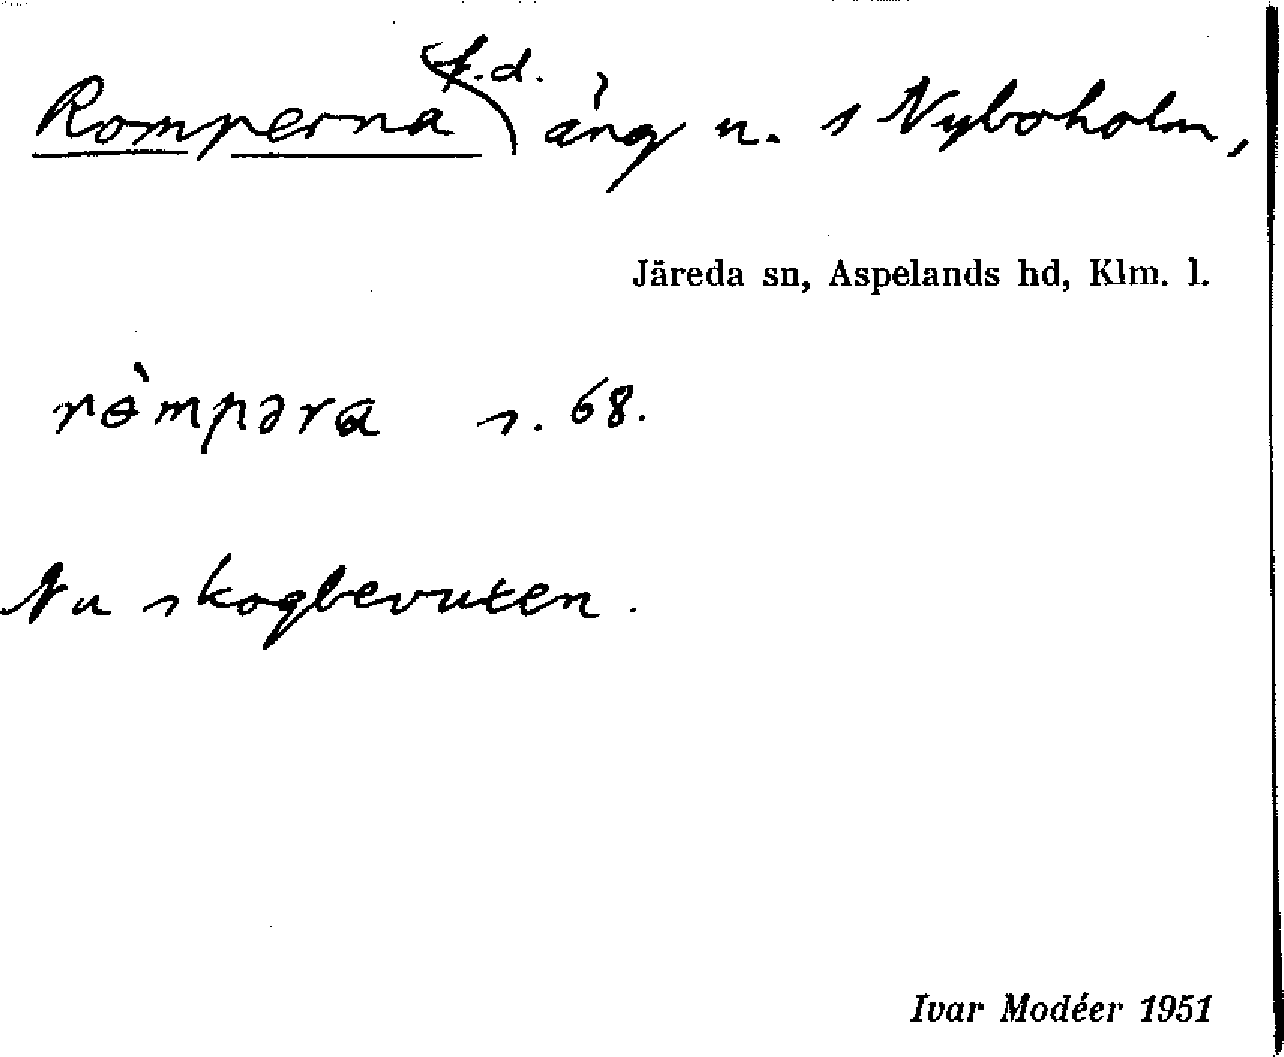 Romperna f.d. äng u. s Nyboholm,
Järeda sn, Aspelands hd, Klm. l.
rɵ̀mpəra s. 68.
Nu skogbevuxen.
Ivar Modéer 1951